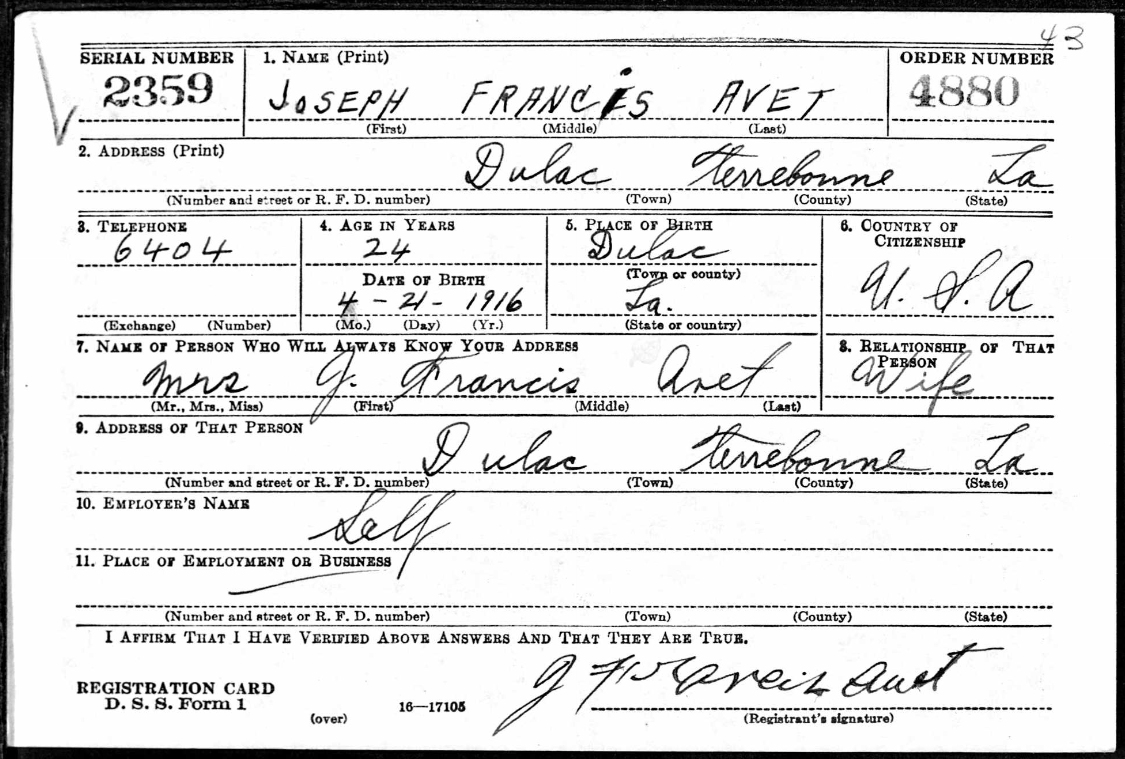 43
SERIAL NUMBER 1. NAME (Print) ORDER NUMBER
2359 JOSEPH FRANCIS AVET 4880
(First) (Middle) (Last)
2. ADDRESS (Print)
Dulac Terrebonne La
(Number and street or R. F. D. number) (Town) (County) (State)
3. TELEPHONE 4. AGE IN YEARS 5. PLACE OF BIRTH 6. COUNTRY OF
CITIZENSHIP
6404 24 Dulac
DATE OF BIRTH (Town or county)
4 - 21 - 1916 La. U. S. A
(Exchange) (Number) (Mo.) (Day) (Yr.) (State or country)
7. NAME OF PERSON WHO WILL ALWAYS KNOW YOUR ADDRESS 8. RELATIONSHIP OF THAT
PERSON
Mrs J. Francis Avet Wife
(Mr., Mrs., Miss) (First) (Middle) (Last)
9. ADDRESS OF THAT PERSON
Dulac Terrebonne La
(Number and street or R. F. D. number) (Town) (County) (State)
10. EMPLOYER'S NAME
Self
11. PLACE OF EMPLOYMENT OR BUSINESS
(Number and street or R. F. D. number) (Town) (County) (State)
I AFFIRM THAT I HAVE VERIFIED ABOVE ANSWERS AND THAT THEY ARE TRUE.
J Francis Avet
REGISTRATION CARD
D. S. S. Form 1 (over) 16—17105 (Registrant's signature)